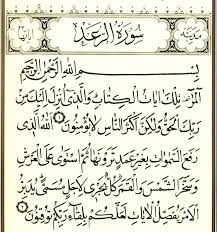 مدنية
سورة الرعد
آياتها
بسم الله الرحمن الرحيم
المر تلك آيات الكتاب والذي أنزل إليك من
ربك الحق ولكن أكثر الناس لا يؤمنون ١ الله الذي
رفع السموات بغير عمد ترونها ثم استوى على العرش
وسخر الشمس والقمر كل يجري لأجل مسمى يدبر
الأمر يفصل الآيات لعلكم بلقاء ربكم توقنون ٢